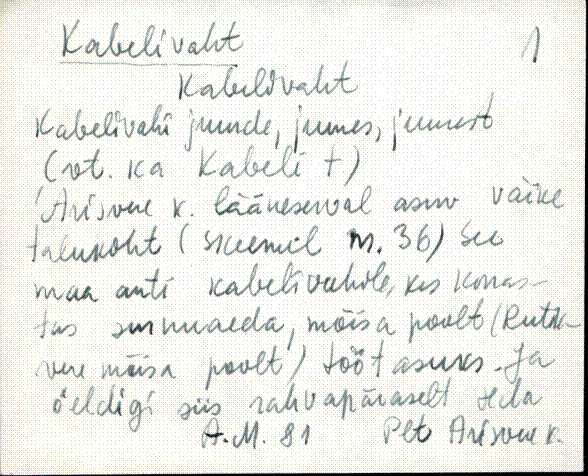 Kabelivaht
1
Kabelivaht
Kabelivahi juurde, juures, juurest
(vt. ka Kabeli t)
Arisvere k. lääneserval asuv väike
talukoht (skeemil nr. 36) See
maa anti kabelivahile, kes korras-
tas surnuaeda, mõisa poolt (Rutik-
vere mõisa poolt) töötasuks. Ja
öeldigi siis rahvapäraselt seda
A.M. 81 Plt Arisvere k.